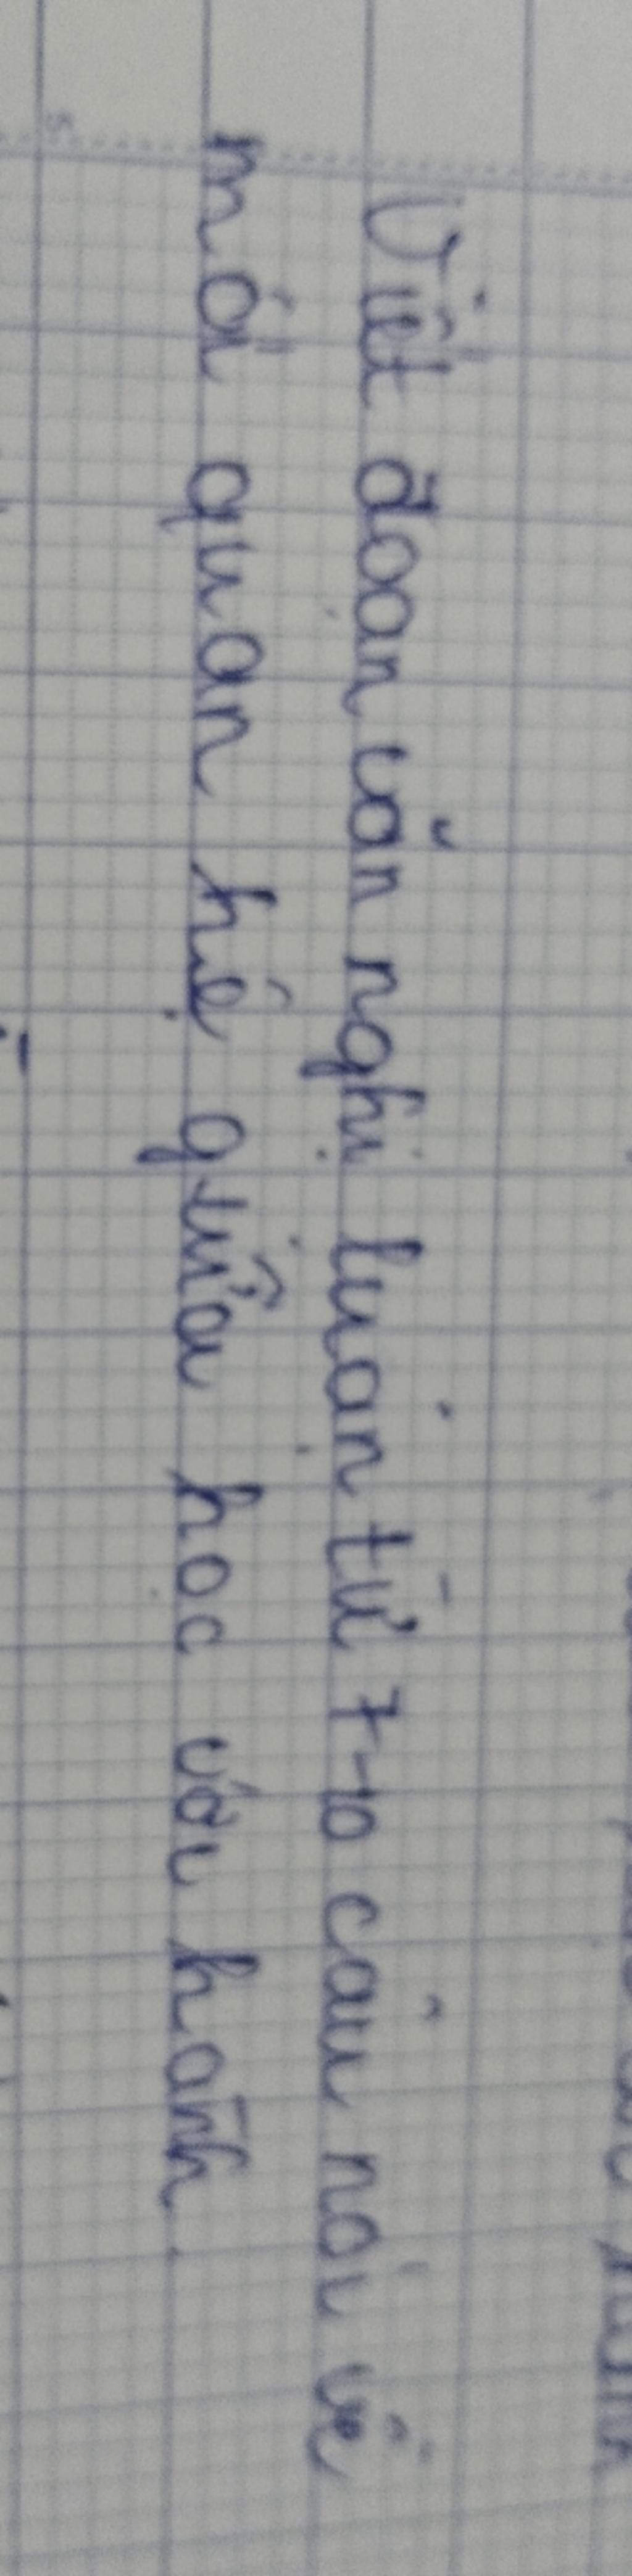 Viết đoạn văn nghị luận từ 7-10 câu nói về
mối quan hệ giữa học với hành.